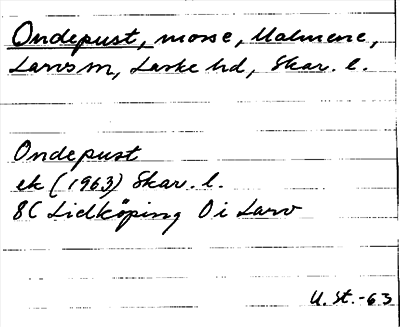 Ondepust, mosse, Malmene,
Larvs m, Laske hd, Skar. l.
Ondepust
ek (1963) Skar. l.
8C Lidköping Ö i Larv
U. St. -63